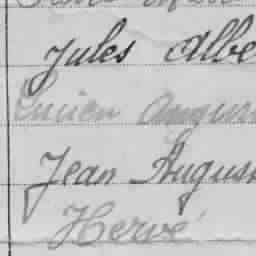 Jules Albe
Lucien Augus
Jean Augus
Hervé